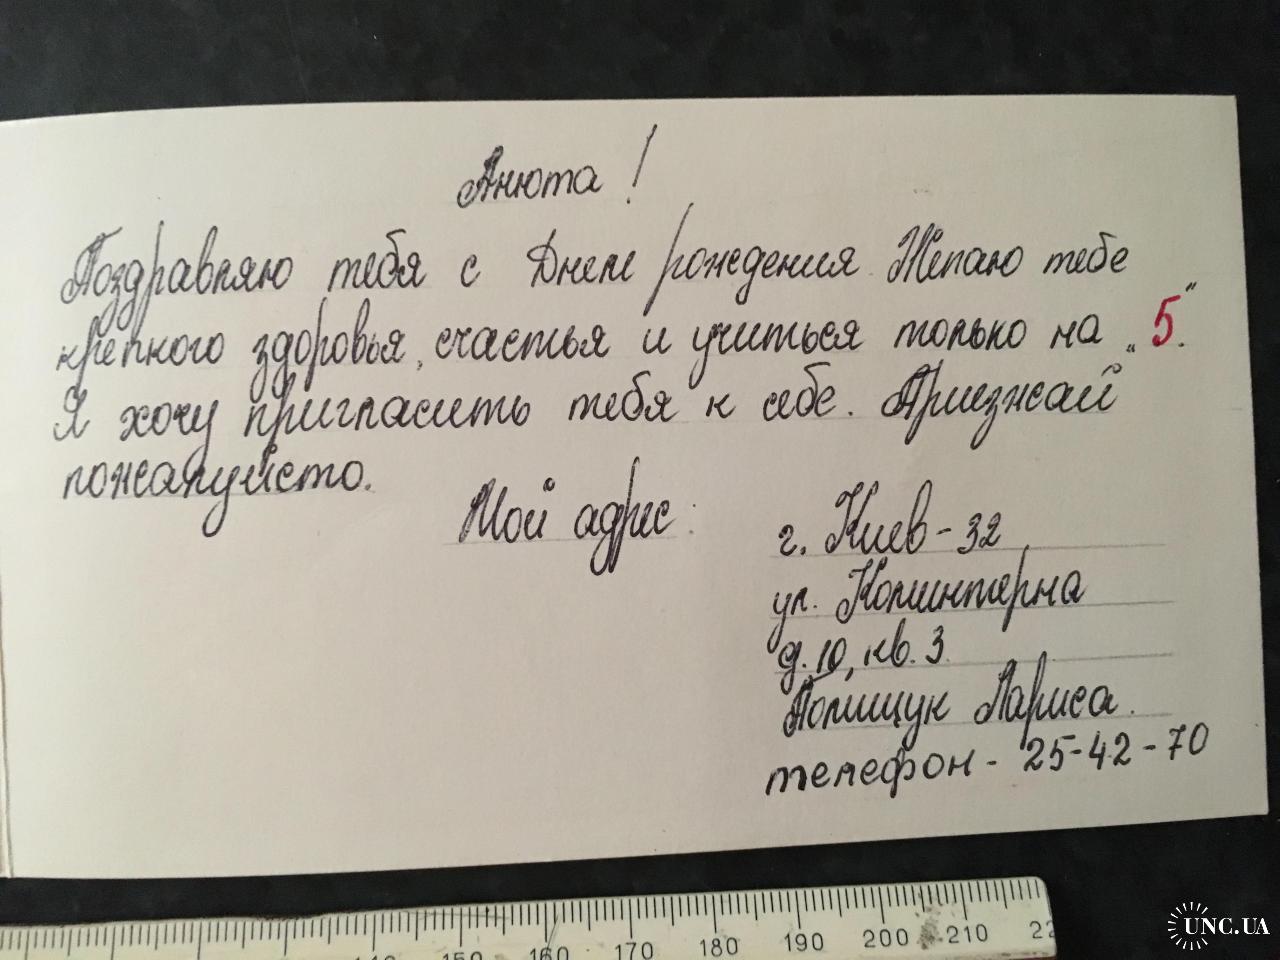 Анюта!
Поздравляю тебя с Днем рождения. Желаю тебе
крепкого здоровья, счастья и учиться только на „5“.
Я хочу пригласить тебя к себе. Приезжай
пожалуйсто.
Мой адрес:
г. Киев-32
ул. Коминтерна
д. 10, кв. 3
Полищук Лариса.
телефон - 25-42-70
140 150 160 170 180 190 200 210 22
UNC.UA